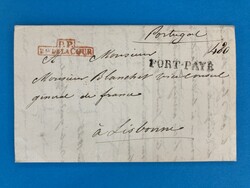 Portugal
P.P.
PORT-PAYÉ
A Monsieur
Monsieur Blanchet Vice Consul
général de france
à Lisbonne